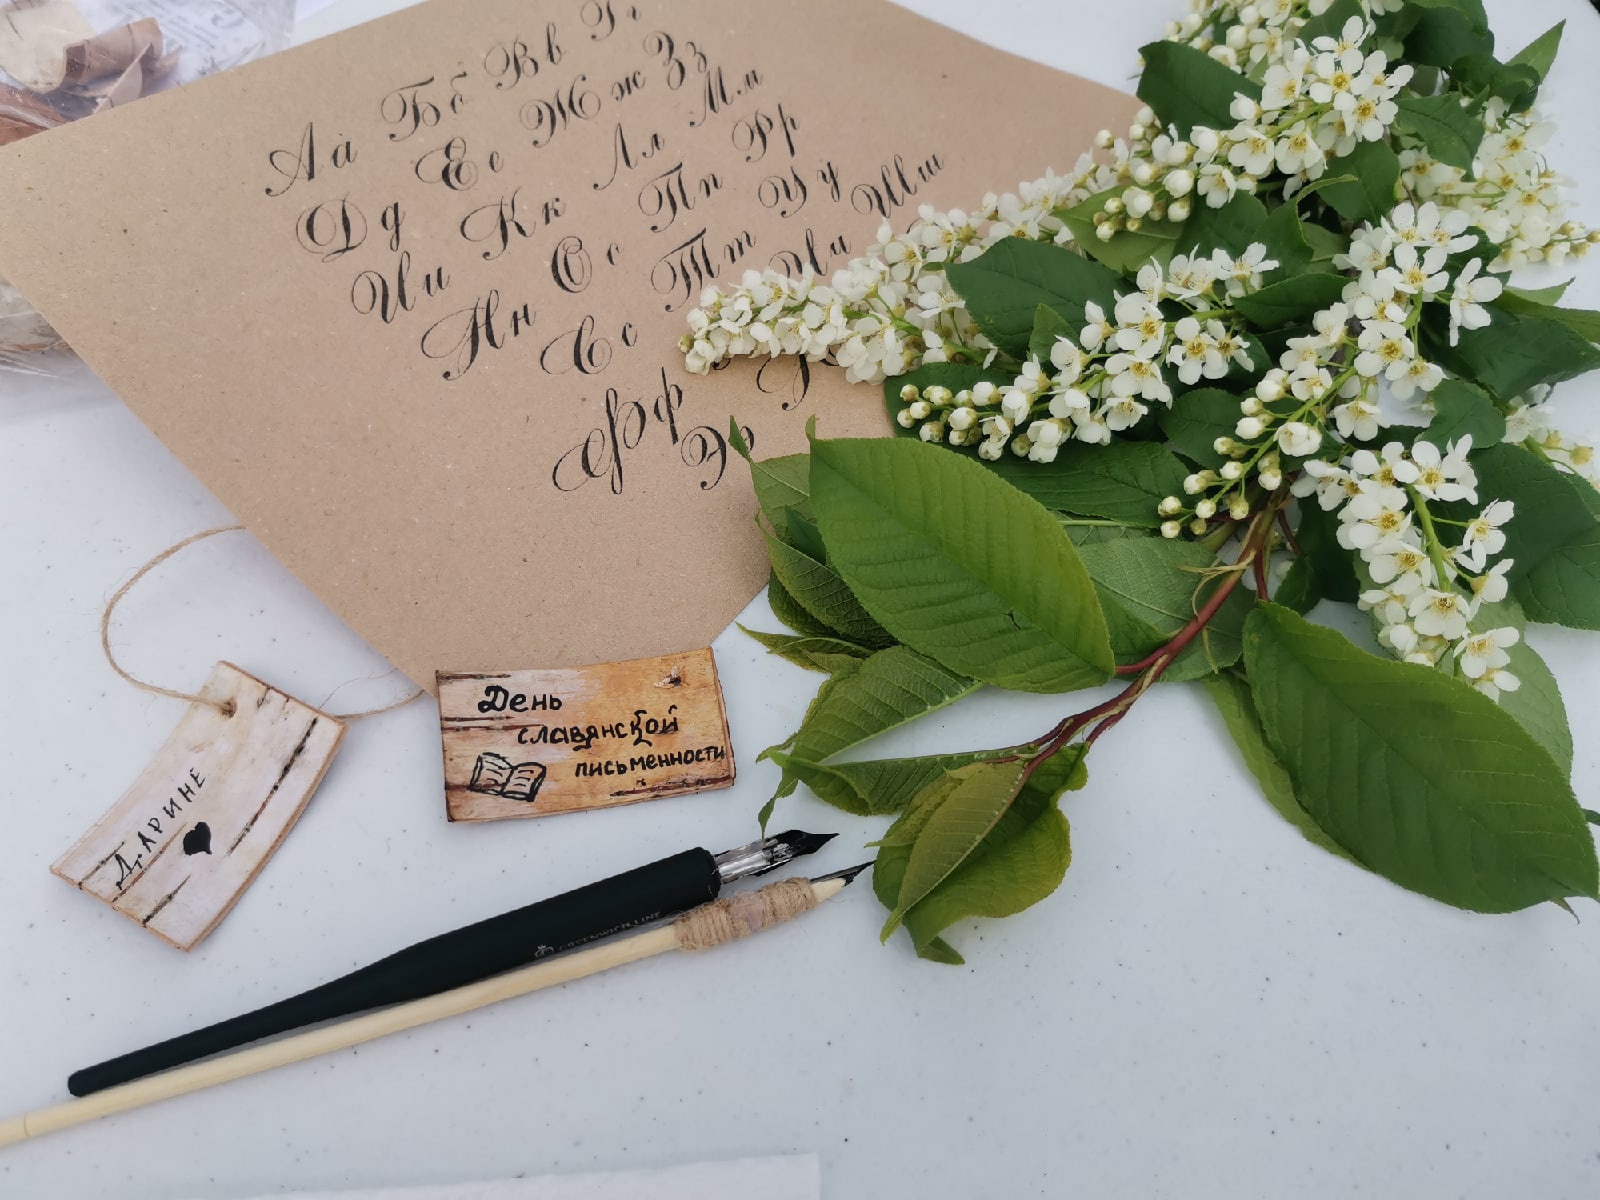 Аа Бб Вв Гг
Дд Ее Жж Зз
Ии Кк Лл Мм
Нн Оо Пп Рр
Сс Тт Уу
Фф Шш
Ээ
День
славянской
письменности
ДАРИНЕ
GREENWICH LINE